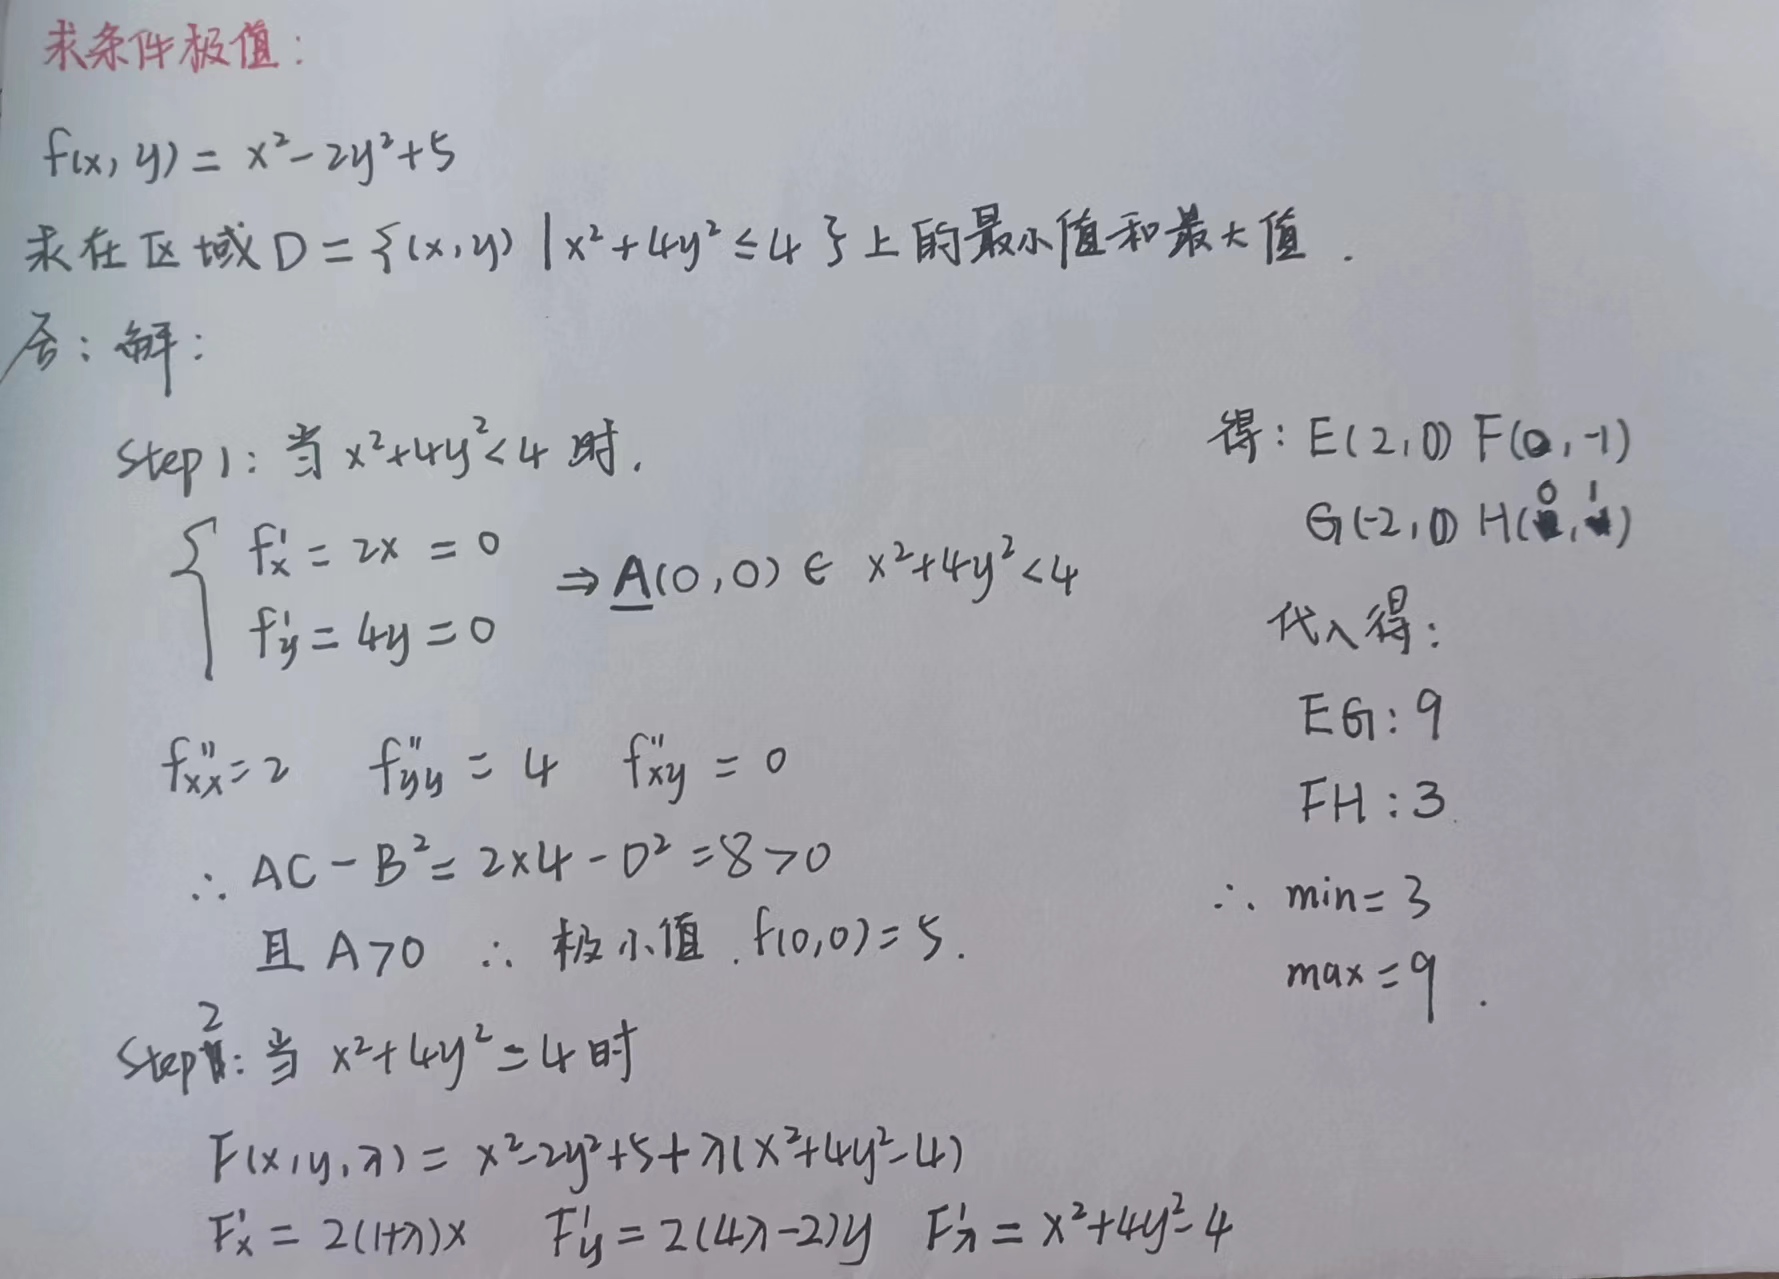 求条件极值:
f(x, y) = x²-2y²+5
求在区域D={(x,y) | x²+4y²≤4}上的最小值和最大值.
答: 解:
Step1: 当 x²+4y²<4 时.
f'x = 2x = 0
f'y = 4y = 0
⇒ A(0,0) ∈ x²+4y²<4
f''xx = 2 f''yy = 4 f''xy = 0
∴ AC - B² = 2×4 - 0² = 8 > 0
且 A>0 ∴ 极小值. f(0,0) = 5.
Step2: 当 x²+4y²=4 时
F(x,y,λ) = x²-2y²+5+λ(x²+4y²-4)
F'x = 2(1+λ)x F'y = 2(4λ-2)y F'λ = x²+4y²-4
得: E(2,0) F(0,-1)
G(-2,0) H(0,1)
代入得:
EG: 9
FH: 3
∴ min = 3
max = 9.